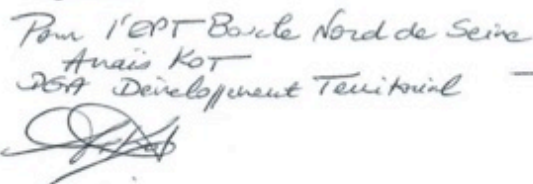 Pour l'EPT Boucle Nord de Seine
Anaïs KOT
DGA Développement Territorial